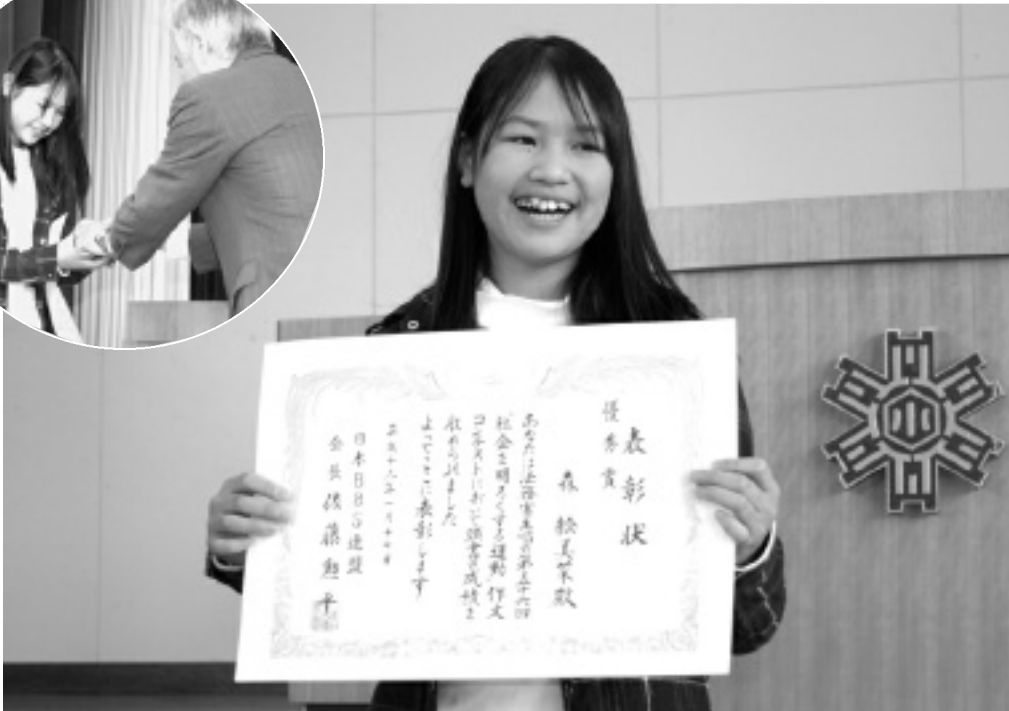 表彰状
優秀賞
森 絵美 殿
あなたは法務省主唱の第五十六回
社会を明るくする運動 作文
コンテストにおいて頭書の成績を
収められました
よってここに表彰します
平成十八年一月十
日本BBS連盟
会長 佐藤勲平
小